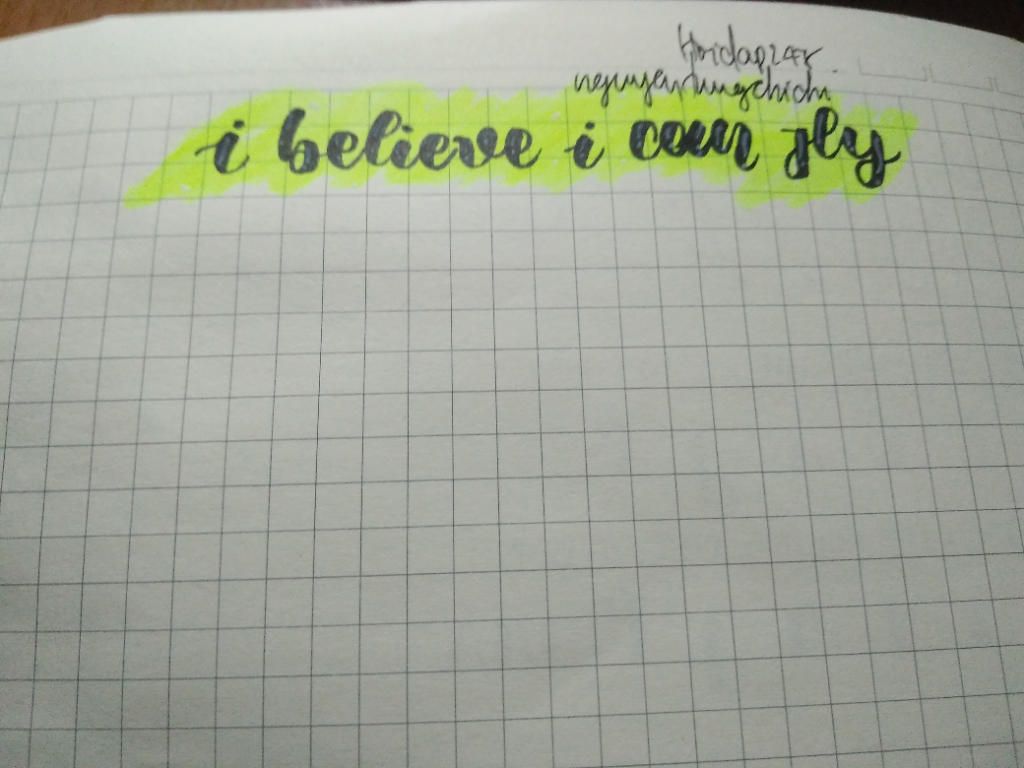 Hoidap247
nguyenhungchichi
i believe i can fly